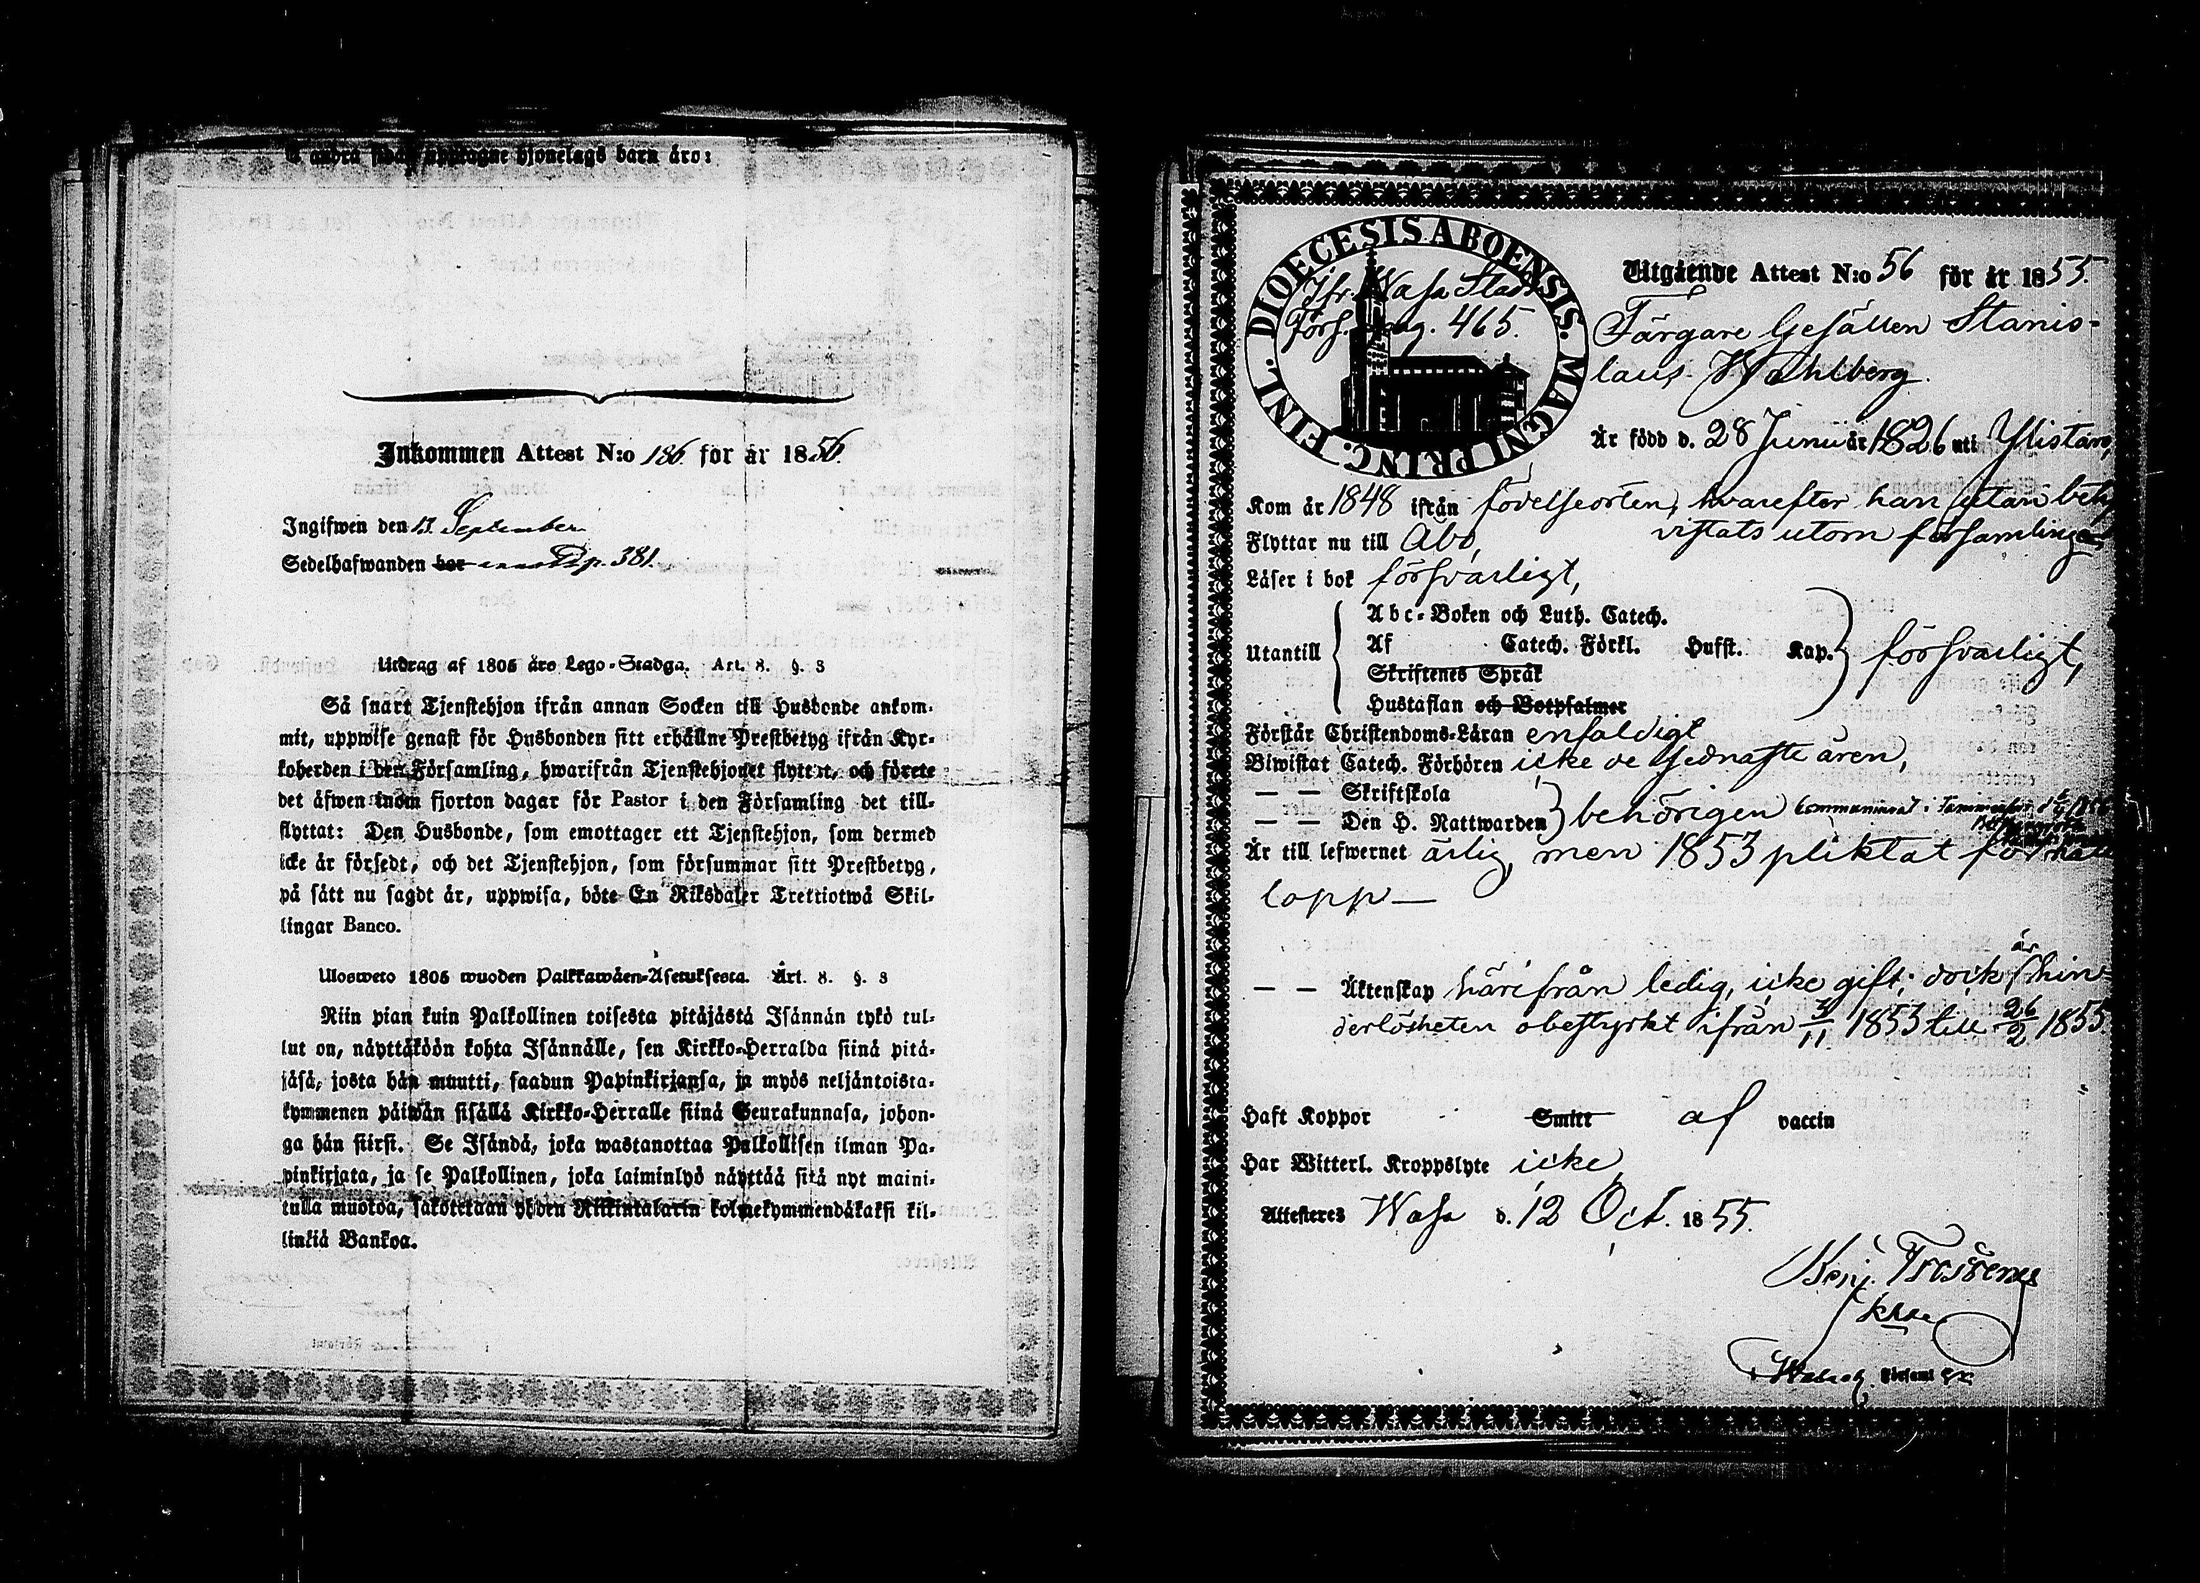 å andra sidan upptagne hjonelags barn äro:
Inkommen Attest N:o 186. för år 1856.
Ingifwen den 17. September
Sedelhafwanden bor p. 381.
Utdrag af 1805 års Lego-Stadga. Art. 8. §. 8
Så snart Tjenstehjon ifrån annan Socken till Husbonde ankom-
mit, uppwise genast för Husbonden sitt erhållne Prestbetyg ifrån Kyr-
koherden i den Församling, hwarifrån Tjenstehjonet flyttat, och förete
det äfwen inom fjorton dagar för Pastor i den Församling det till-
flyttat: Den Husbonde, som emottager ett Tjenstehjon, som dermed
icke är försedt, och det Tjenstehjon, som försummar sitt Prestbetyg,
på sätt nu sagdt är, uppwisa, böte En Riksdaler Trettiotwå Skil-
lingar Banco.
Ulosweto 1805 wuoden Palkkawäen-Asetuksesta. Art. 8. §. 8
Niin pian kuin Palkollinen toisesta pitäjästä Isännän tykö tul-
lut on, näyttäköön kohta Isännälle, sen Kirkko-Herralda siinä pitä-
jäsä, josta hän muutti, saadun Papinkirjansa, ja myös neljäntoista-
kymmenen päiwän sisällä Kirkko-Herralle siinä Seurakunnasa, johon-
ga hän siirst. Se Isändä, joka wastanottaa Palkollisen ilman Pa-
pinkirjata, ja se Palkollinen, joka laiminlyö näyttää sitä nyt maini-
tulla muotoa, sakotetaan yhden Riikintalarin kolmekymmendäkaksi kil-
linkiä Bankoa.
DIOECESIS ABOENSIS. MAGNI PRINC. FINL.
Jfr. Wasa Stads
Förs. pag. 465.
Utgående Attest N:o 56 för år 1855.
Färgare Gesällen Stanis-
laus Wahlberg.
Är född d. 28 Junii år 1826 uti Ylistaro,
Kom år 1848 ifrån födelseorten, hvarefter han utan betyg
vistats utom församlingen
Flyttar nu till Åbo,
Läser i bok försvarligt,
Abc-Boken och Luth. Catech.
Utantill Af Catech. Förkl. Husst. Kap. försvarligt,
Skriftenes Språk
Hustaflan och Botpsalmer
Förstår Christendoms-Läran enfaldigt
Biwistat Catech. Förhören icke de sednaste åren,
— — Skriftskola
— — Den H. Nattwarden behörigen communicerat i Tammerfors
Är till lefwernet ärlig, men 1853 pliktat för
lopp —
— — Äktenskap härifrån ledig, icke gift; dock är hin-
derlösheten obestyrkt ifrån 1853 till 26/2 1855.
Haft Koppor Smitt af vaccin
Har Witterl. Kroppslyte icke
Attesteras Wasa d. 12 Oct. 1855.
Benj. Frosterus
Församl